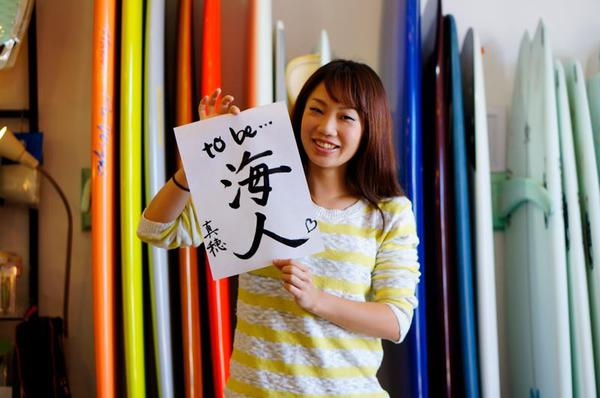 to be...
海
人
真穂